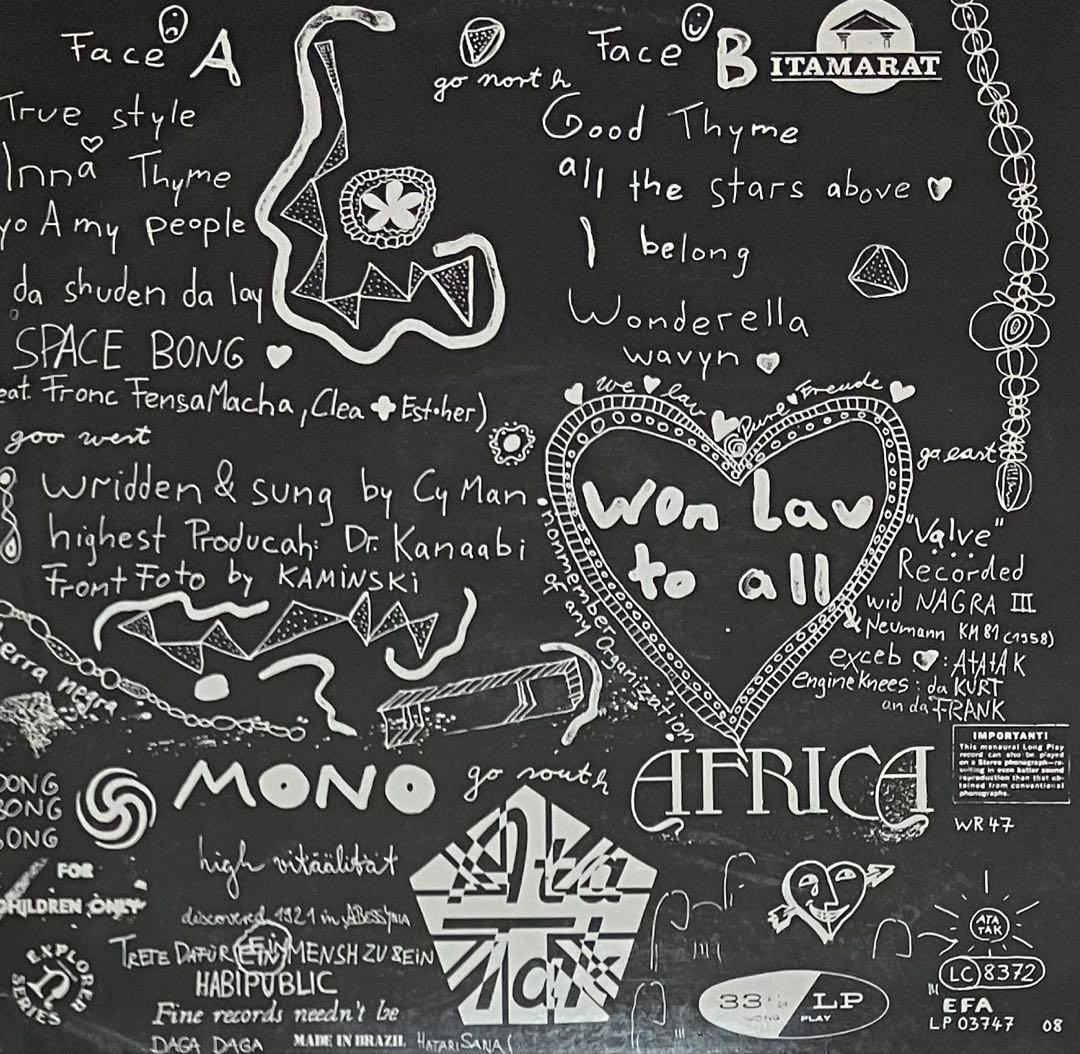 Face A
go north
Face B
ITAMARAT
True style
Inna Thyme
yo A my people
da shuden da lay
SPACE BONG
eat. Fronc FensaMacha, Clea + Est.her)
goo west
Good Thyme
all the stars above
I belong
Wonderella
wavyn
wridden & sung by Cy Man
highest Producah: Dr. Kanaabi
Front Foto by KAMiNSKi
we lav Pure Freude
Won Lav
to all
nonmember of any Organization
go east
"Valve"
Recorded
wid NAGRA III
& Neumann KM 81 (1958)
exceb : AtAtAK
engineknees: da KURT
an da FRANK
erra negra
MONO
go south
AFRICA
IMPORTANT!
This monaural Long Play
record can also be played
on a Stereo phonograph—re-
sulting in even better sound
reproduction than that ob-
tained from conventional
phonographs.
WR 47
DONG
BONG
SONG
FOR
CHILDREN ONLY
EXPLORER
SERIES
high vitäälität
discovered 1921 in ABESSyNiA
TRETE DAFÜR EIN MENSCH ZU SEIN
HABIPUBLIC
Fine records needn't be
DAGA DAGA
MADE IN BRAZIL
HATARi SANA
Ata
tak
33 1/3 LP
LONG PLAY
ATA
TAK
LC 8372
EFA
LP 03747 08